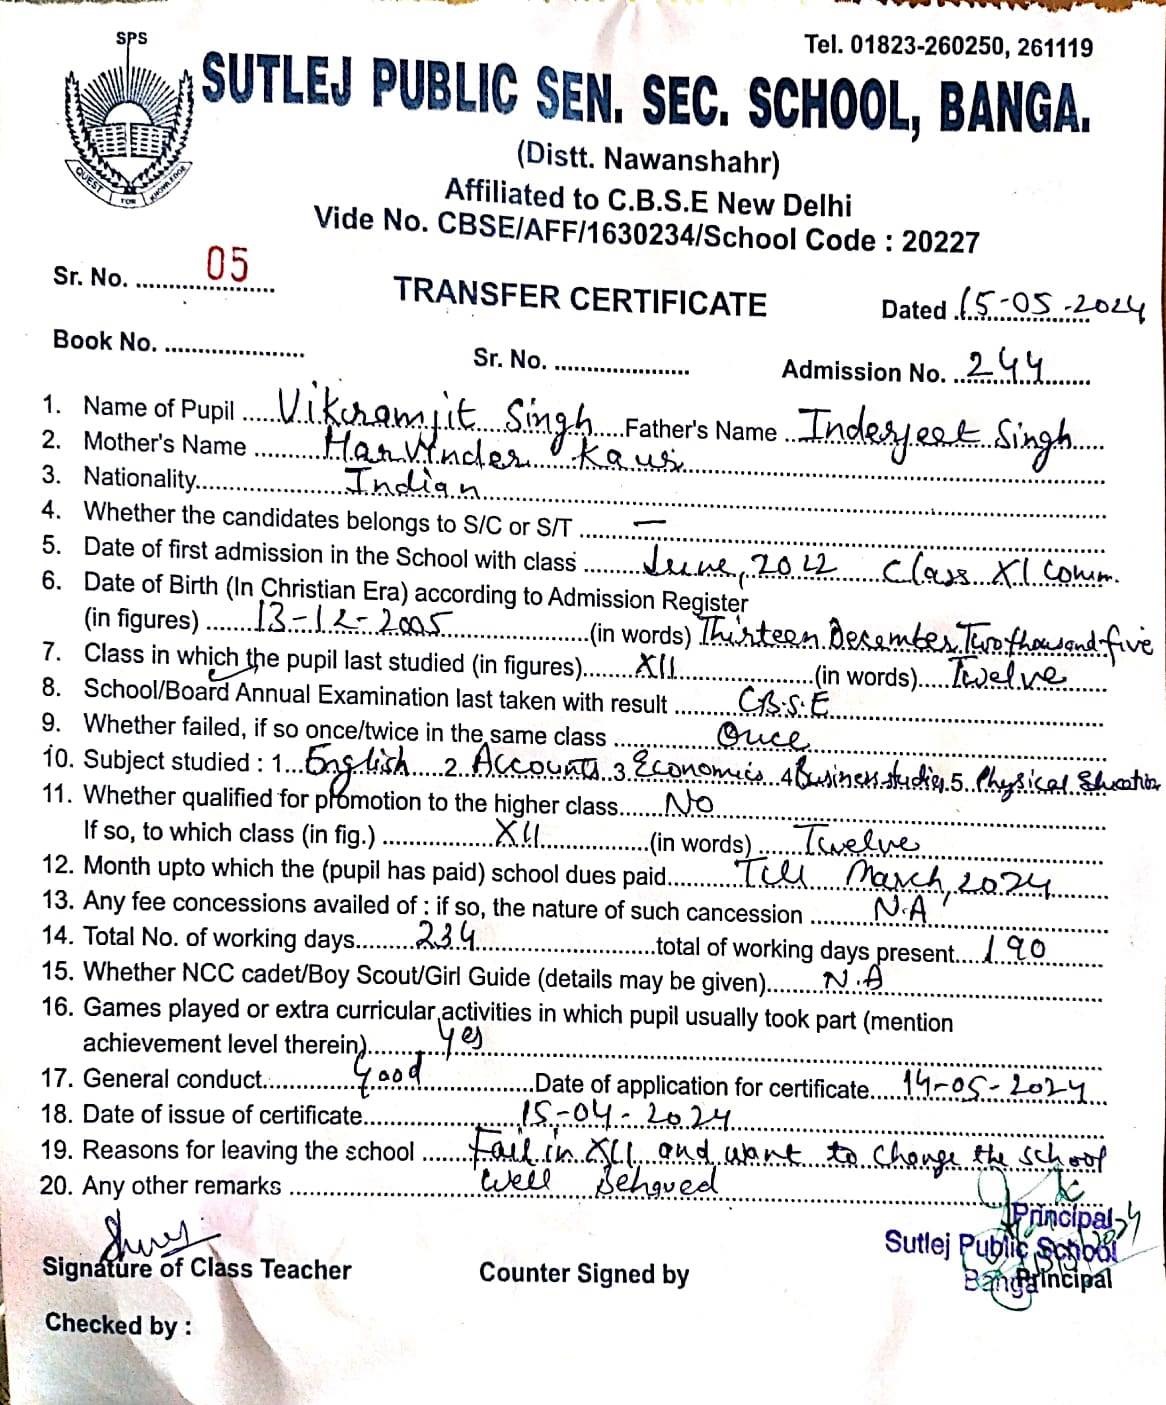 SPS
QUEST FOR KNOWLEDGE
Tel. 01823-260250, 261119
SUTLEJ PUBLIC SEN. SEC. SCHOOL, BANGA.
(Distt. Nawanshahr)
Affiliated to C.B.S.E New Delhi
Vide No. CBSE/AFF/1630234/School Code : 20227
Sr. No. .......05.......
TRANSFER CERTIFICATE
Dated 15-05-2024
Book No. .....................
Sr. No. .....................
Admission No. 244
1. Name of Pupil Vikramjit Singh Father's Name Inderjeet Singh
2. Mother's Name Harvinder Kaur
3. Nationality Indian
4. Whether the candidates belongs to S/C or S/T —
5. Date of first admission in the School with class June, 2022 Class XI Comm.
6. Date of Birth (In Christian Era) according to Admission Register
(in figures) 13-12-2005 (in words) Thirteen December Two thousand five
7. Class in which the pupil last studied (in figures) XII (in words) Twelve
8. School/Board Annual Examination last taken with result C.B.S.E
9. Whether failed, if so once/twice in the same class Once
10. Subject studied : 1 English 2 Accounts 3 Economics 4 Business studies 5 Physical Education
11. Whether qualified for promotion to the higher class No
If so, to which class (in fig.) XII (in words) Twelve
12. Month upto which the (pupil has paid) school dues paid Till March, 2024
13. Any fee concessions availed of : if so, the nature of such cancession N.A
14. Total No. of working days 234 total of working days present 190
15. Whether NCC cadet/Boy Scout/Girl Guide (details may be given) N.A
16. Games played or extra curricular activities in which pupil usually took part (mention
achievement level therein) Yes
17. General conduct Good Date of application for certificate 14-05-2024
18. Date of issue of certificate 15-04-2024
19. Reasons for leaving the school Fail in XII and want to change the school
20. Any other remarks Well Behaved
Principal
Sutlej Public School
Banga
Signature of Class Teacher
Counter Signed by
Principal
Checked by :